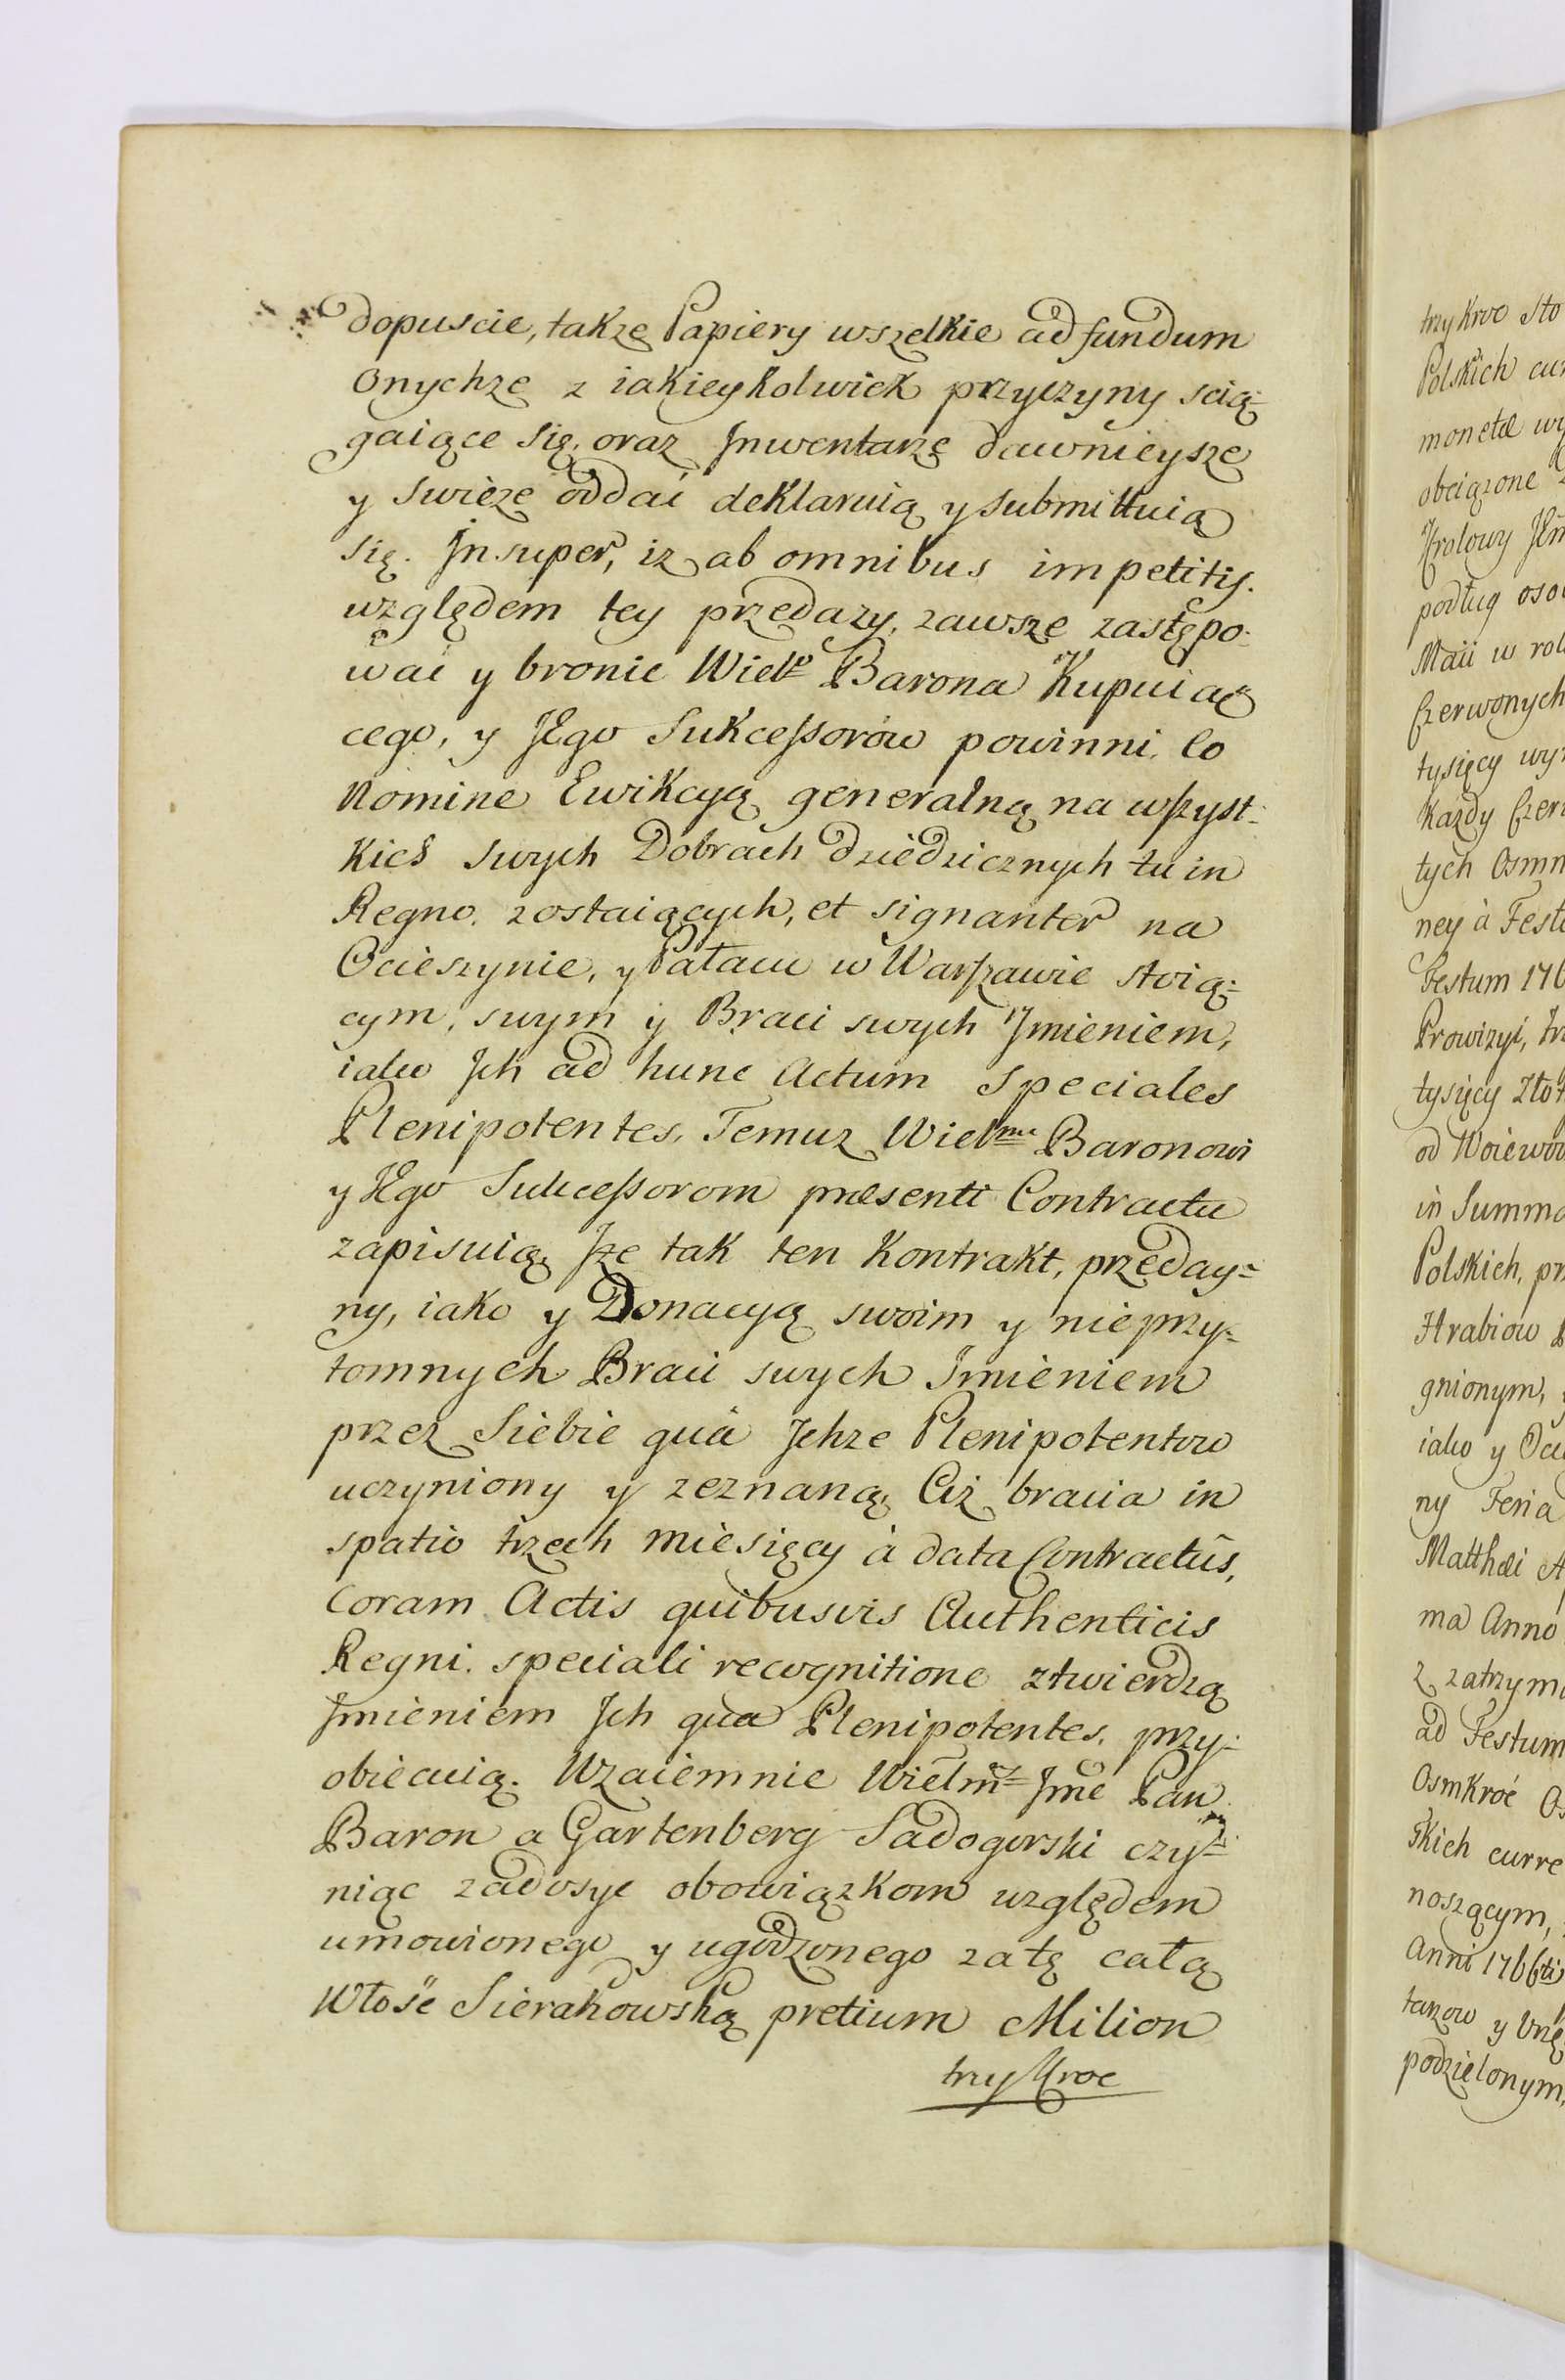 dopuscie, takze Papiery wszelkie ad fundum
Onychze z iakieykolwiek przyczyny scią-
gaiące się, oraz Jnwentarze dawnieysze
y swieze oddać deklaruią y submittuią
się. Jnsuper, iz ab omnibus impetitis.
względem tey przedazy, zawsze zastępo-
wać y bronic Wielo Barona Kupuią
cego, y JEgo Sukcessorów powinni, Eo
Nomine Ewikcyą generalną na wszyst-
kich swych Dobrach dziedzicznych tu in
Regno. zostaiących, et signanter na
Ocieszynie, y Pałacu w Warszawie stoią-
cym, swym y Braci swych Jmieniem,
iako Jch ad hunc Actum Speciales
Plenipotentes, Temuz Wielmu Baronowi
y JEgo Sukcessorom præsenti Contractu
zapisuią, Jze tak ten Kontrakt, przeday-
ny, iako y Donacyą swoim y nieprzy-
tomnych Braci swych Jmieniem
przez Siebie quà Jchze Plenipotentow
uczyniony y zeznaną, Ciż bracia in
spatio trzech miesięcy à data Contractûs,
Coram Actis quibusvis Authenticis
Regni. speciali recognitione ztwierdzą
Jmieniem Jch qua Plenipotentes, przy-
obiecuią. Wzaiemnie Wielmż Jmć Pan
Baron a Gartenberg Sadogorski czy-
niąc zadosyc obowiązkom względem
umowionego y ugodzonego za tę całą
Włość Sierakowską pretium Milion
trzykroc
trzykroc sto
Polskich
monetæ
obciązone
Krolowy
podług
Maii w
Czerwonych
tysięcy
Kazdy
tych
ney à
Festum
Prowizyi,
tysięcy
od
in
Polskich,
Hrabiow
gnionym,
iako y
ny Feria
Matthæi
ma Anno
z
ad Festum
Osmkroć
skich
noszącym,
Anni 1766ti
y
podzielonym,